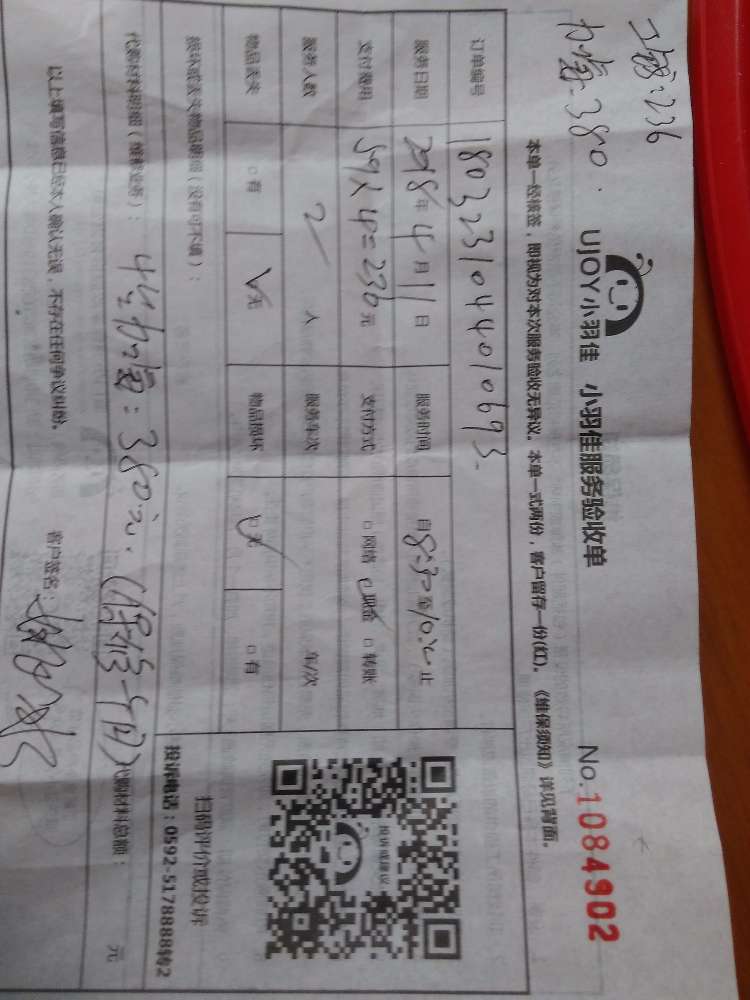 工钱:236
材料:380.
UJOY小羽佳 小羽佳服务验收单 No.1084902
本单一经接签,即视为对本次服务验收无异议。本单一式两份,客户留存一份(红)。《维保须知》详见背面。
订单编号 180323104401069 3
服务日期 2018年4月11日 服务时间 自8:30至10:20止
支付费用 59X4=236元 支付方式 □网络 ☑现金 □转账
服务人数 2人 服务车次 车/次
物品丢失 □有 ☑无 物品损坏 ☑无 □有
损坏或丢失物品明细(没有可不填):
扫码评价或投诉
投诉电话:0592-5178888转2
投诉或建议
代购材料明细(维修业务): 材料:380元. 代购材料总额: 元
以上填写信息已经本人确认无误,不存在任何争议纠纷。 客户签名: